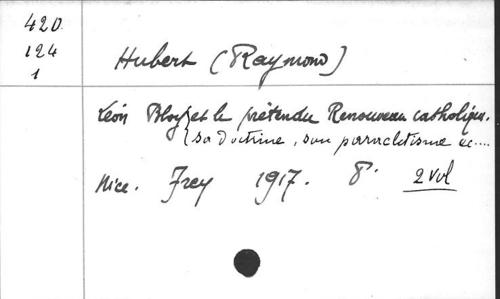 420.
124
1
Hubert (Raymond)
Léon Bloy et le prétendu Renouveau catholique.
(sa doctrine, son paraclétisme &c....
Nice. Frey 1917. 8°. 2 vol